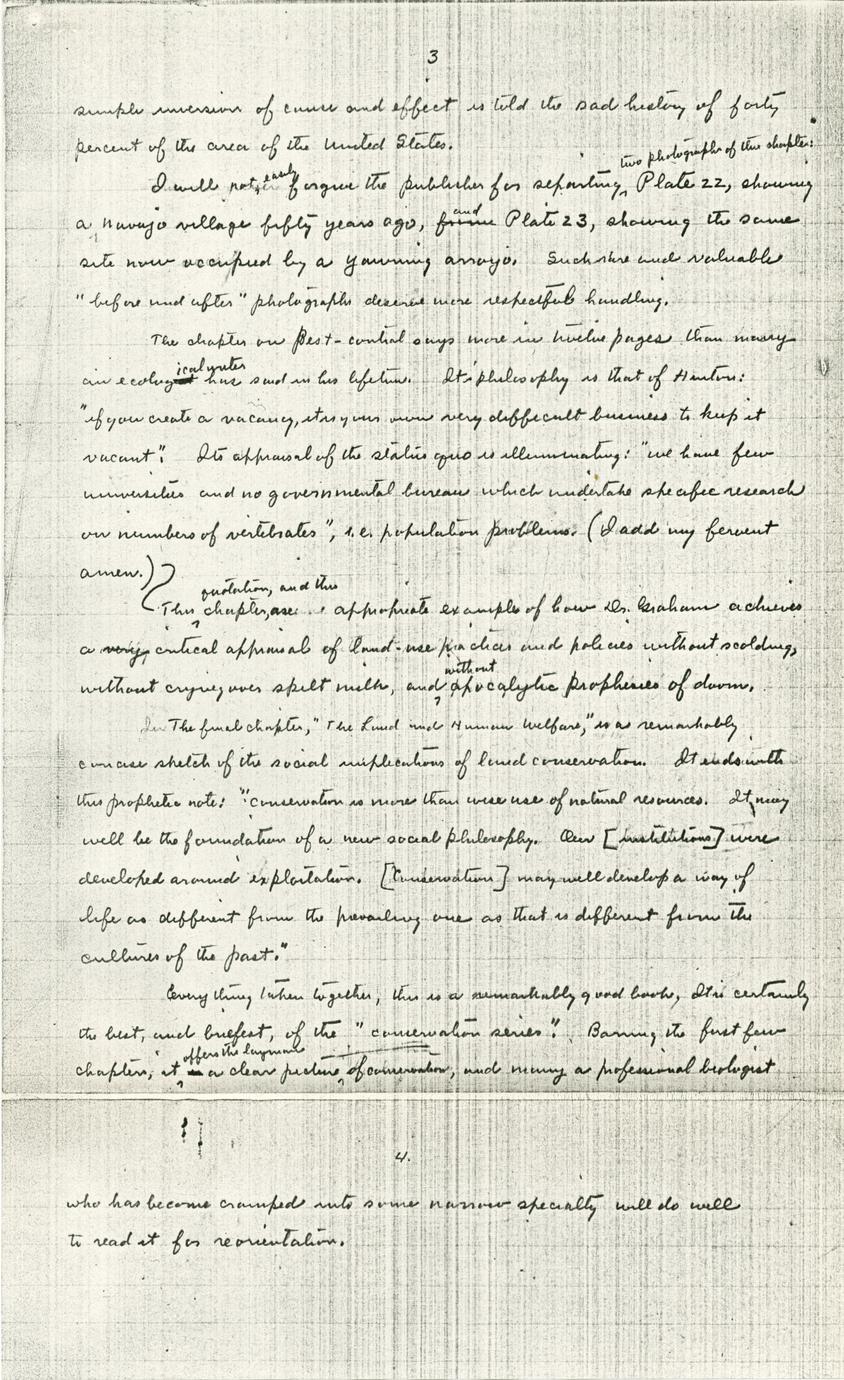 3
simple inversion of cause and effect is told the sad history of forty
percent of the area of the United States.
two photographs of this chapter:
I will not easily forgive the publisher for separating Plate 22, showing
a Navajo village fifty years ago, from and Plate 23, showing the same
site now occupied by a yawning arroyo. Such rare and valuable
"before and after" photographs deserve more respectful handling.
The chapter on Pest-control says more in twelve pages than many
ical writer
an ecologist has said in his lifetime. Its philosophy is that of Huxton:
"if you create a vacancy, it is your own very difficult business to keep it
vacant". Its appraisal of the status quo is illuminating: "we have few
universities and no governmental bureau which undertake specific research
on numbers of vertebrates", i.e. population problems. (I add my fervent
amen.)
quotation, and this
This chapter, are appropriate examples of how Dr. Graham achieves
a very critical appraisal of land-use practices and policies without scolding,
without crying over spilt milk, and without apocalyptic prophesies of doom.
In The final chapter, "The Land and Human Welfare," is a remarkably
concise sketch of the social implications of land conservation. It ends with
this prophetic note: "conservation is more than wise use of natural resources. It may
well be the foundation of a new social philosophy. Our [institutions] were
developed around exploitation. [Conservation] may well develop a way of
life as different from the prevailing one as that is different from the
cultures of the past."
Everything taken together, this is a remarkably good book, It is certainly
the best, and briefest, of the "conservation series". Barring the first few
offers the layman
chapters, it a clear picture of conservation, and many a professional biologist
4.
who has become cramped into some narrow specialty will do well
to read it for reorientation.